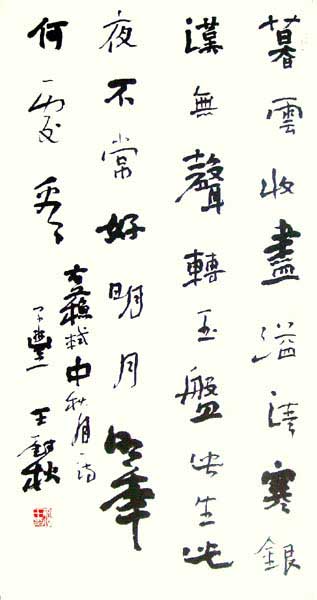 暮雲收盡溢清寒銀
漢無聲轉玉盤此生此
夜不長好明月明年
何處看
右蘇軾中秋月詩
王秋